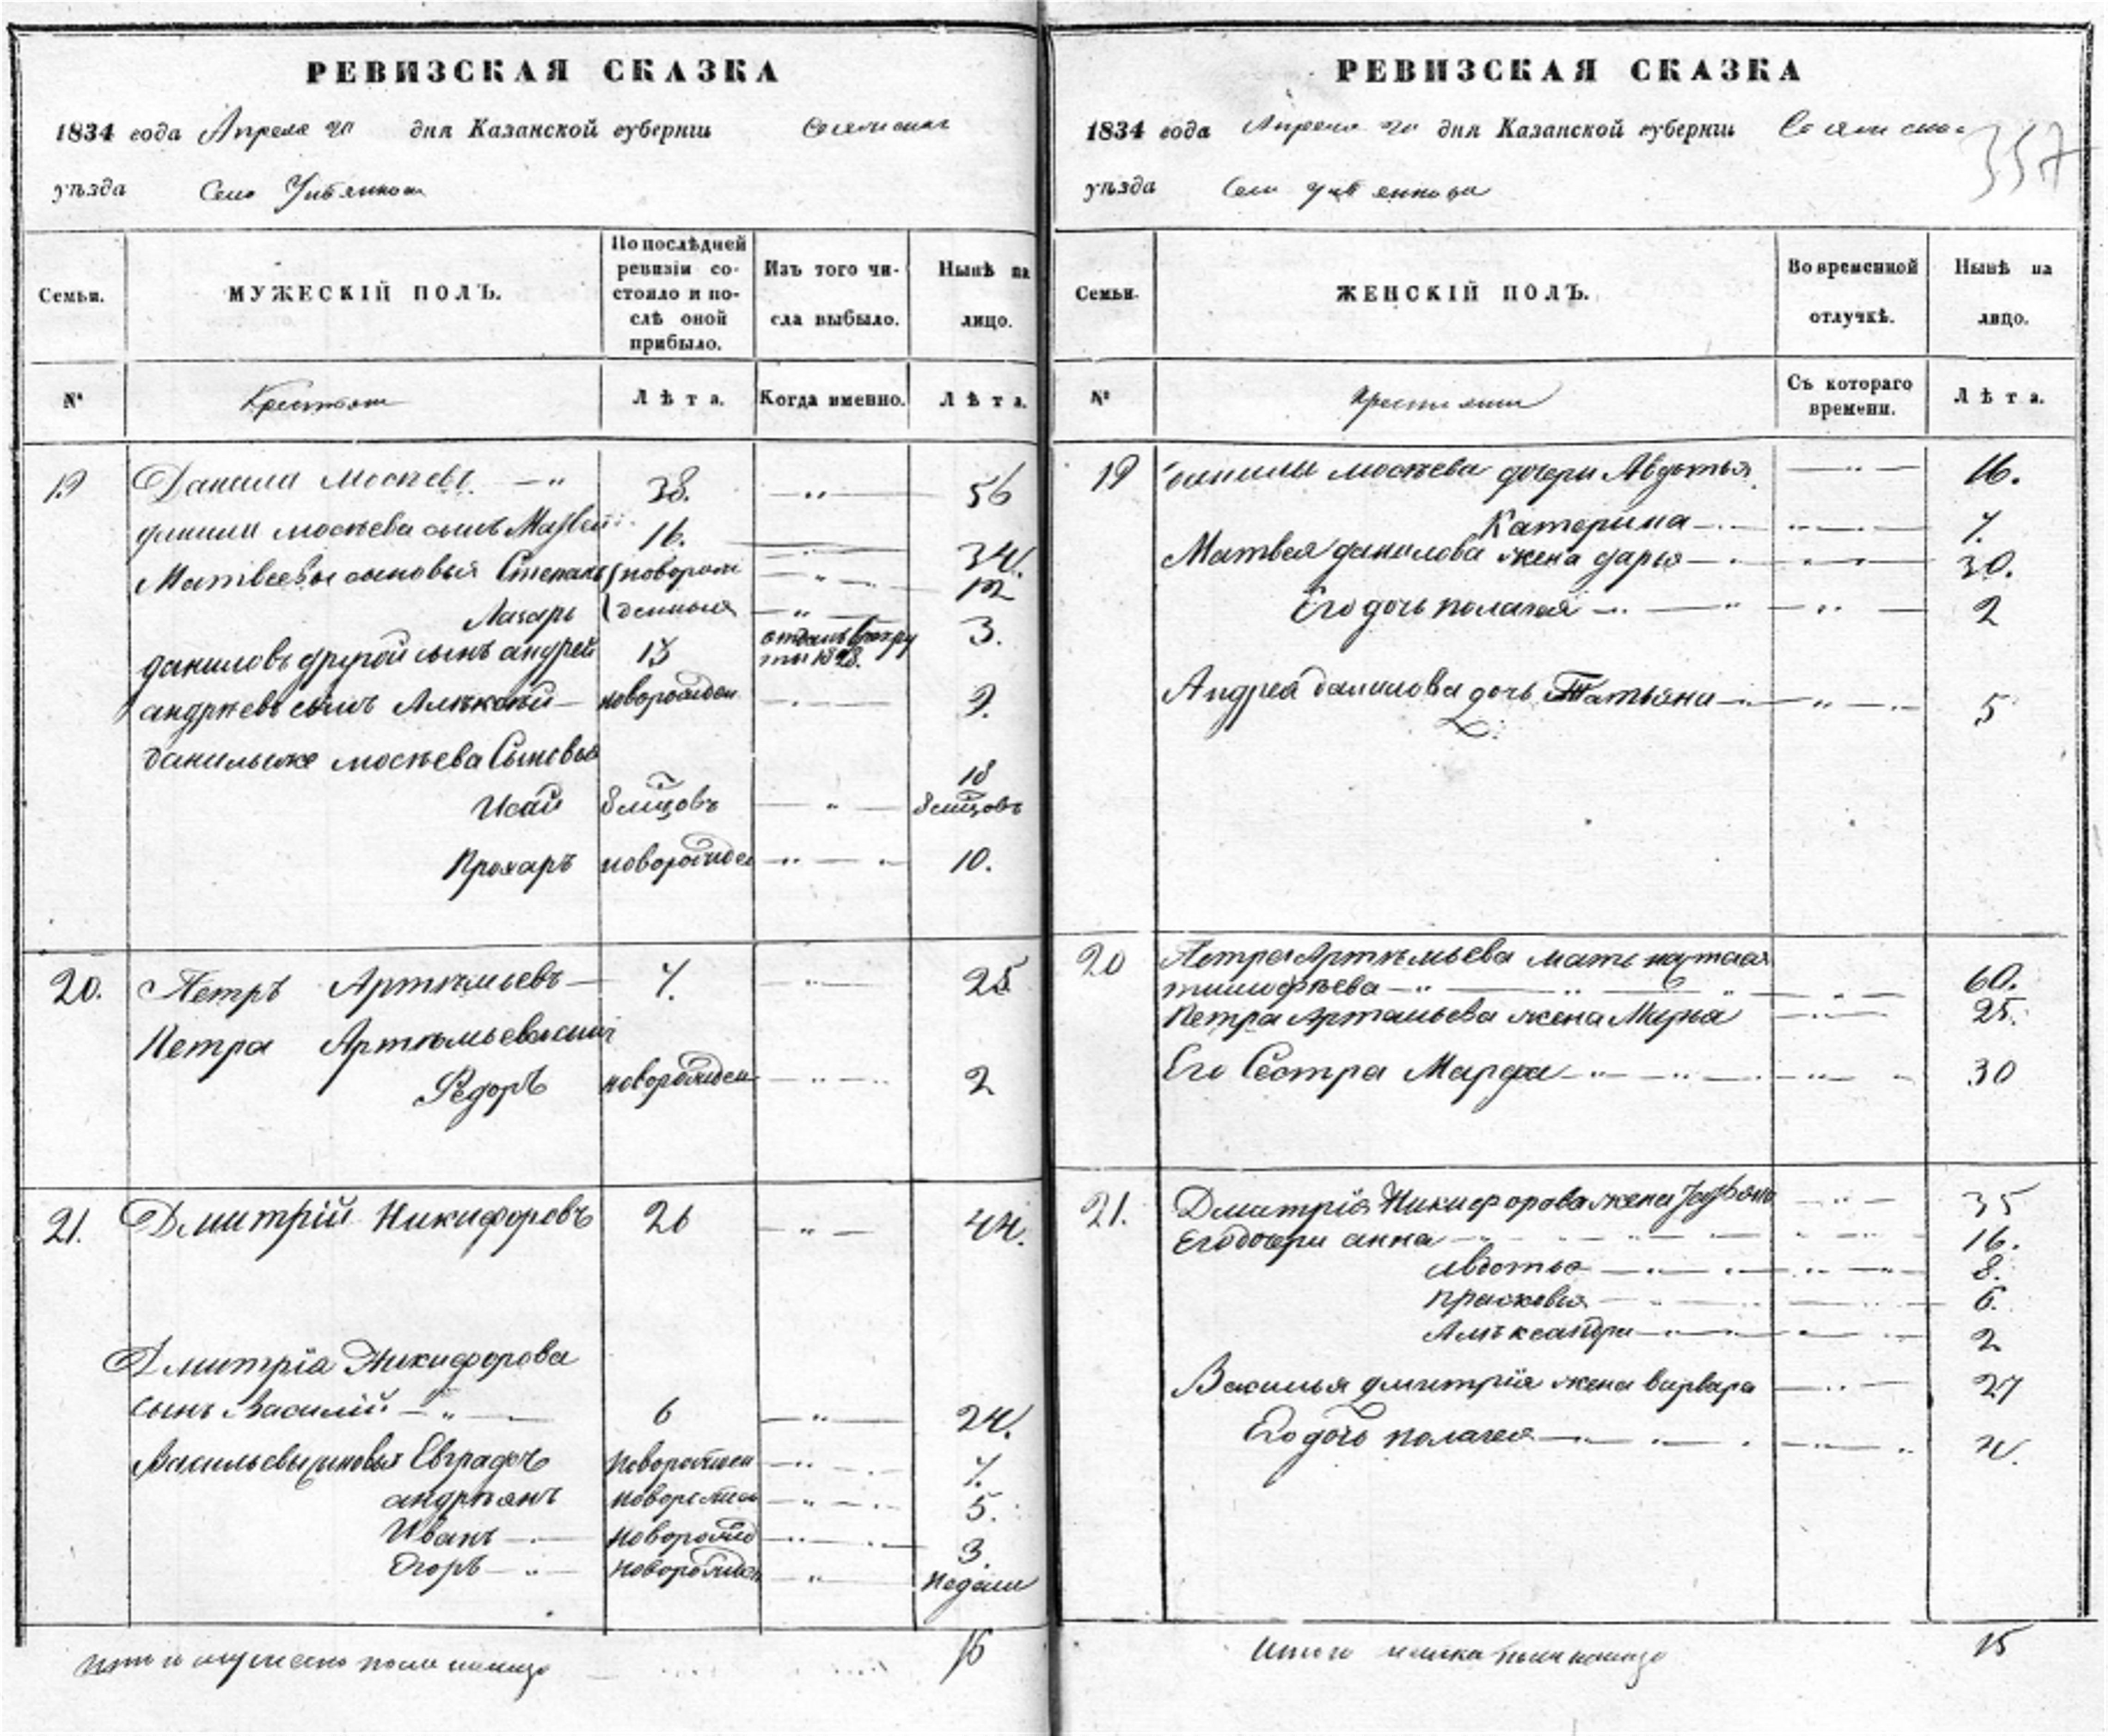 РЕВИЗСКАЯ СКАЗКА
1834 года Апреля 20 дня Казанской губернiи
уѣзда Село
Семьи.
МУЖЕСКIЙ ПОЛЪ.
По послѣдней ревизiи состояло и послѣ оной прибыло.
Изъ того числа выбыло.
Нынѣ на лицо.
№
Лѣта.
Когда именно.
Лѣта.
19 Данила Мосѣевъ 38. 56
Данилы мосѣева сынъ Матвей 16. 34.
Матвеевы сыновья Степанъ новорож 12
Лазарь денныя 3.
даниловъ другой сынъ андрей 15 отданъ врекруты 1828.
андрѣевъ сынъ Алѣксѣй новорожден 9.
данилыже мосѣева Сыновья
Исай 8 мцовъ 18 8 мцовъ
Прохаръ новорожден 10.
20. Петръ Артѣмьевъ 7. 25
Петра Артѣмьева сынъ
Федоръ новорожден 2
21. Дмитрiй Никифоровъ 26 44.
Дмитрiя Никифорова
сынъ Василiй 6 24.
Васильевы сыновья Евграфъ новорожден 7.
андрѣянъ новорожден 5.
Иванъ новорожд 3.
Егоръ новорожден недели
Итого мужеска пола налицо 16
РЕВИЗСКАЯ СКАЗКА
357
1834 года Апреля 20 дня Казанской губернiи
уѣзда Села
Семьи.
ЖЕНСКIЙ ПОЛЪ.
Во временной отлучкѣ.
Нынѣ на лицо.
№
Съ котораго времени.
Лѣта.
19 Данилы мосѣева дочери Авдотья 16.
Катерина 7.
Матвея данилова жена дарья 30.
Его дочь пелагея 2
Андрея данилова дочь Татьяна 5
20 Петра Артѣмьева мать
тимофѣева 60.
Петра Артемьева жена Марья 25.
Его Сестра Марфа 30
21. Дмитрiя Никифорова жена 35
Его дочери анна 16.
Авдотья 8.
прасковья 6.
Алѣксандра 2
Василья дмитрiя жена варвара 27
Его дочь пелагея 4.
Итого женска пола налицо 15